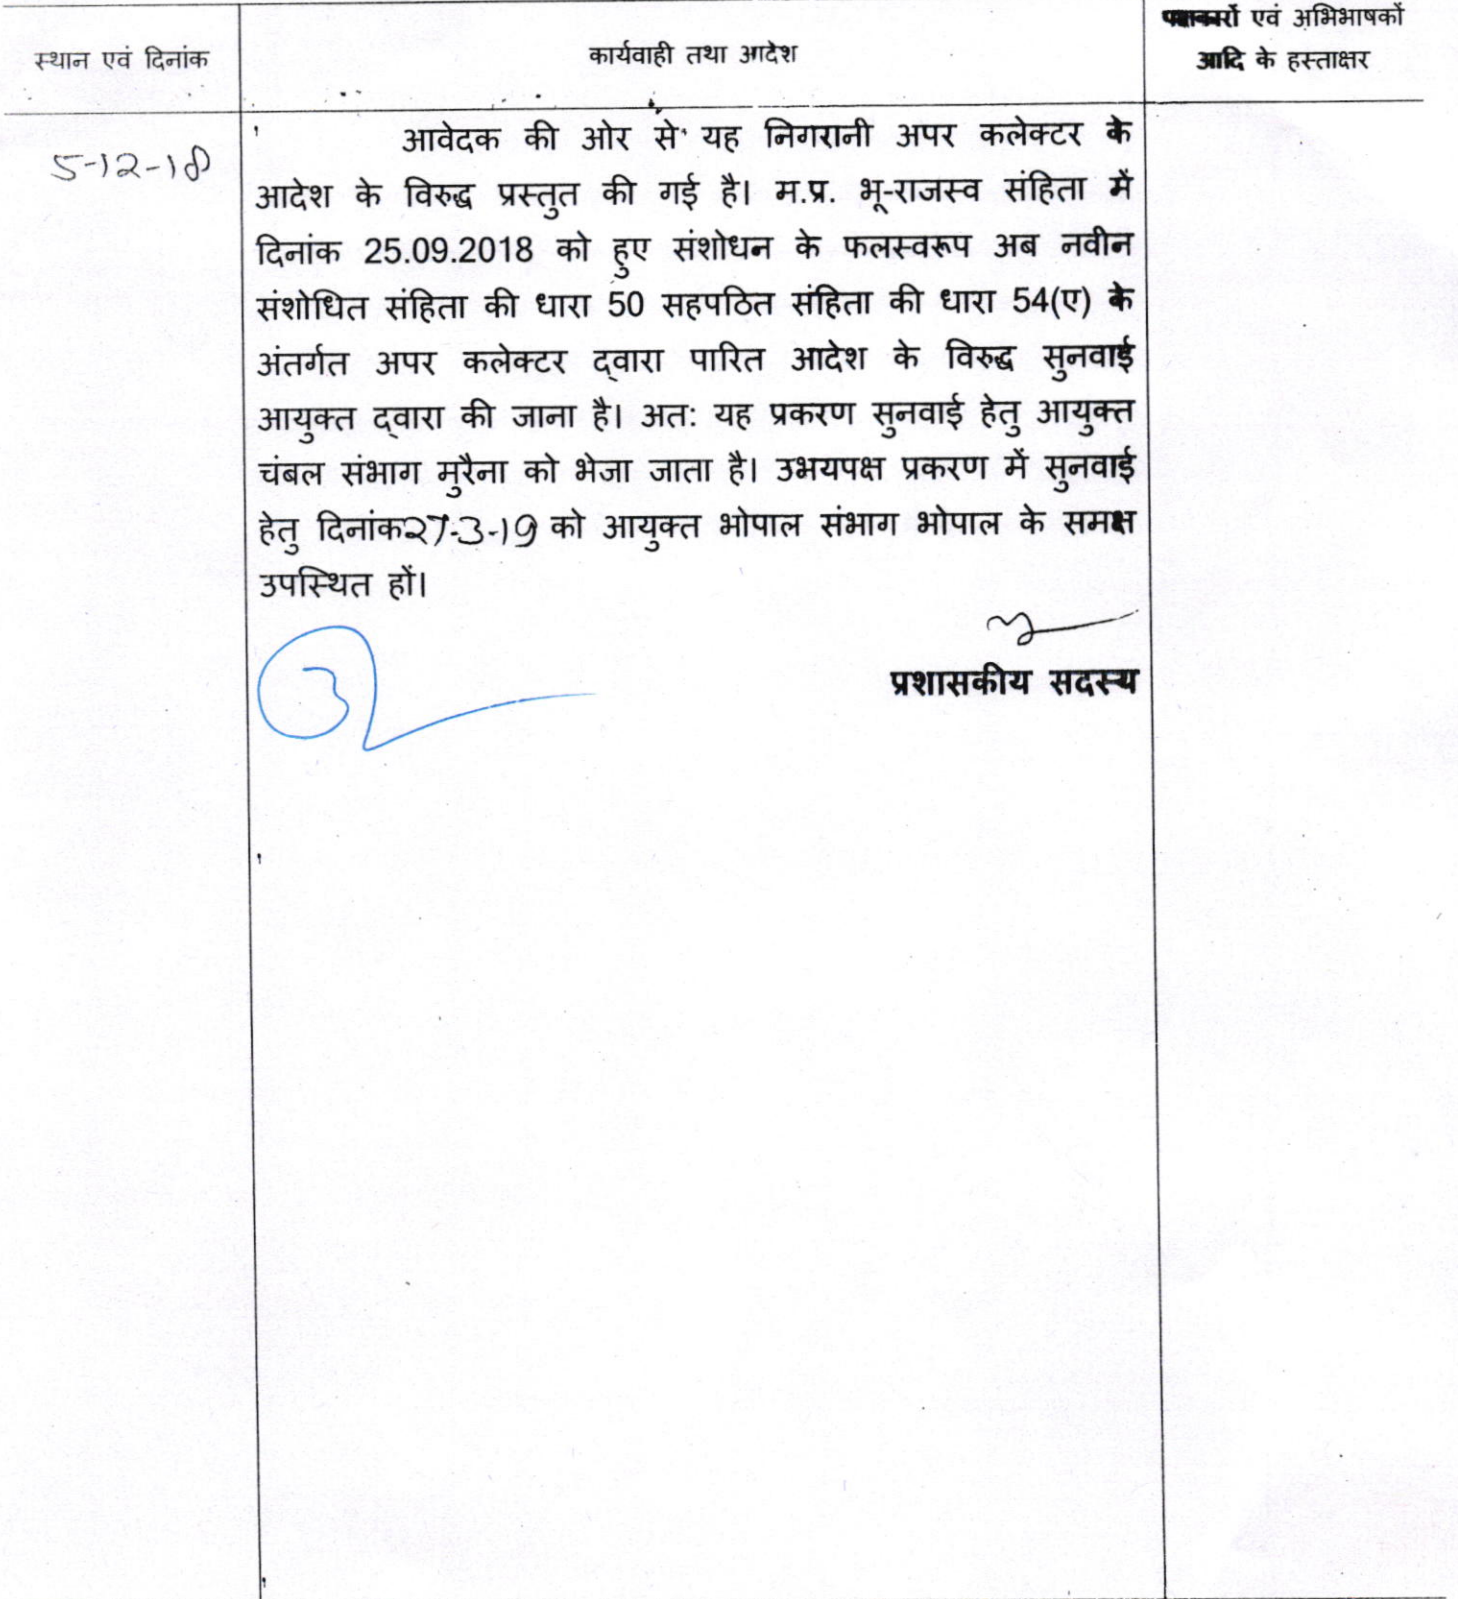 स्थान एवं दिनांक
कार्यवाही तथा आदेश
पक्षकारों एवं अभिभाषकों
आदि के हस्ताक्षर
5-12-18
आवेदक की ओर से यह निगरानी अपर कलेक्टर के
आदेश के विरुद्ध प्रस्तुत की गई है। म.प्र. भू-राजस्व संहिता में
दिनांक 25.09.2018 को हुए संशोधन के फलस्वरूप अब नवीन
संशोधित संहिता की धारा 50 सहपठित संहिता की धारा 54(ए) के
अंतर्गत अपर कलेक्टर द्वारा पारित आदेश के विरुद्ध सुनवाई
आयुक्त द्वारा की जाना है। अत: यह प्रकरण सुनवाई हेतु आयुक्त
चंबल संभाग मुरैना को भेजा जाता है। उभयपक्ष प्रकरण में सुनवाई
हेतु दिनांक 27-3-19 को आयुक्त भोपाल संभाग भोपाल के समक्ष
उपस्थित हों।
प्रशासकीय सदस्य